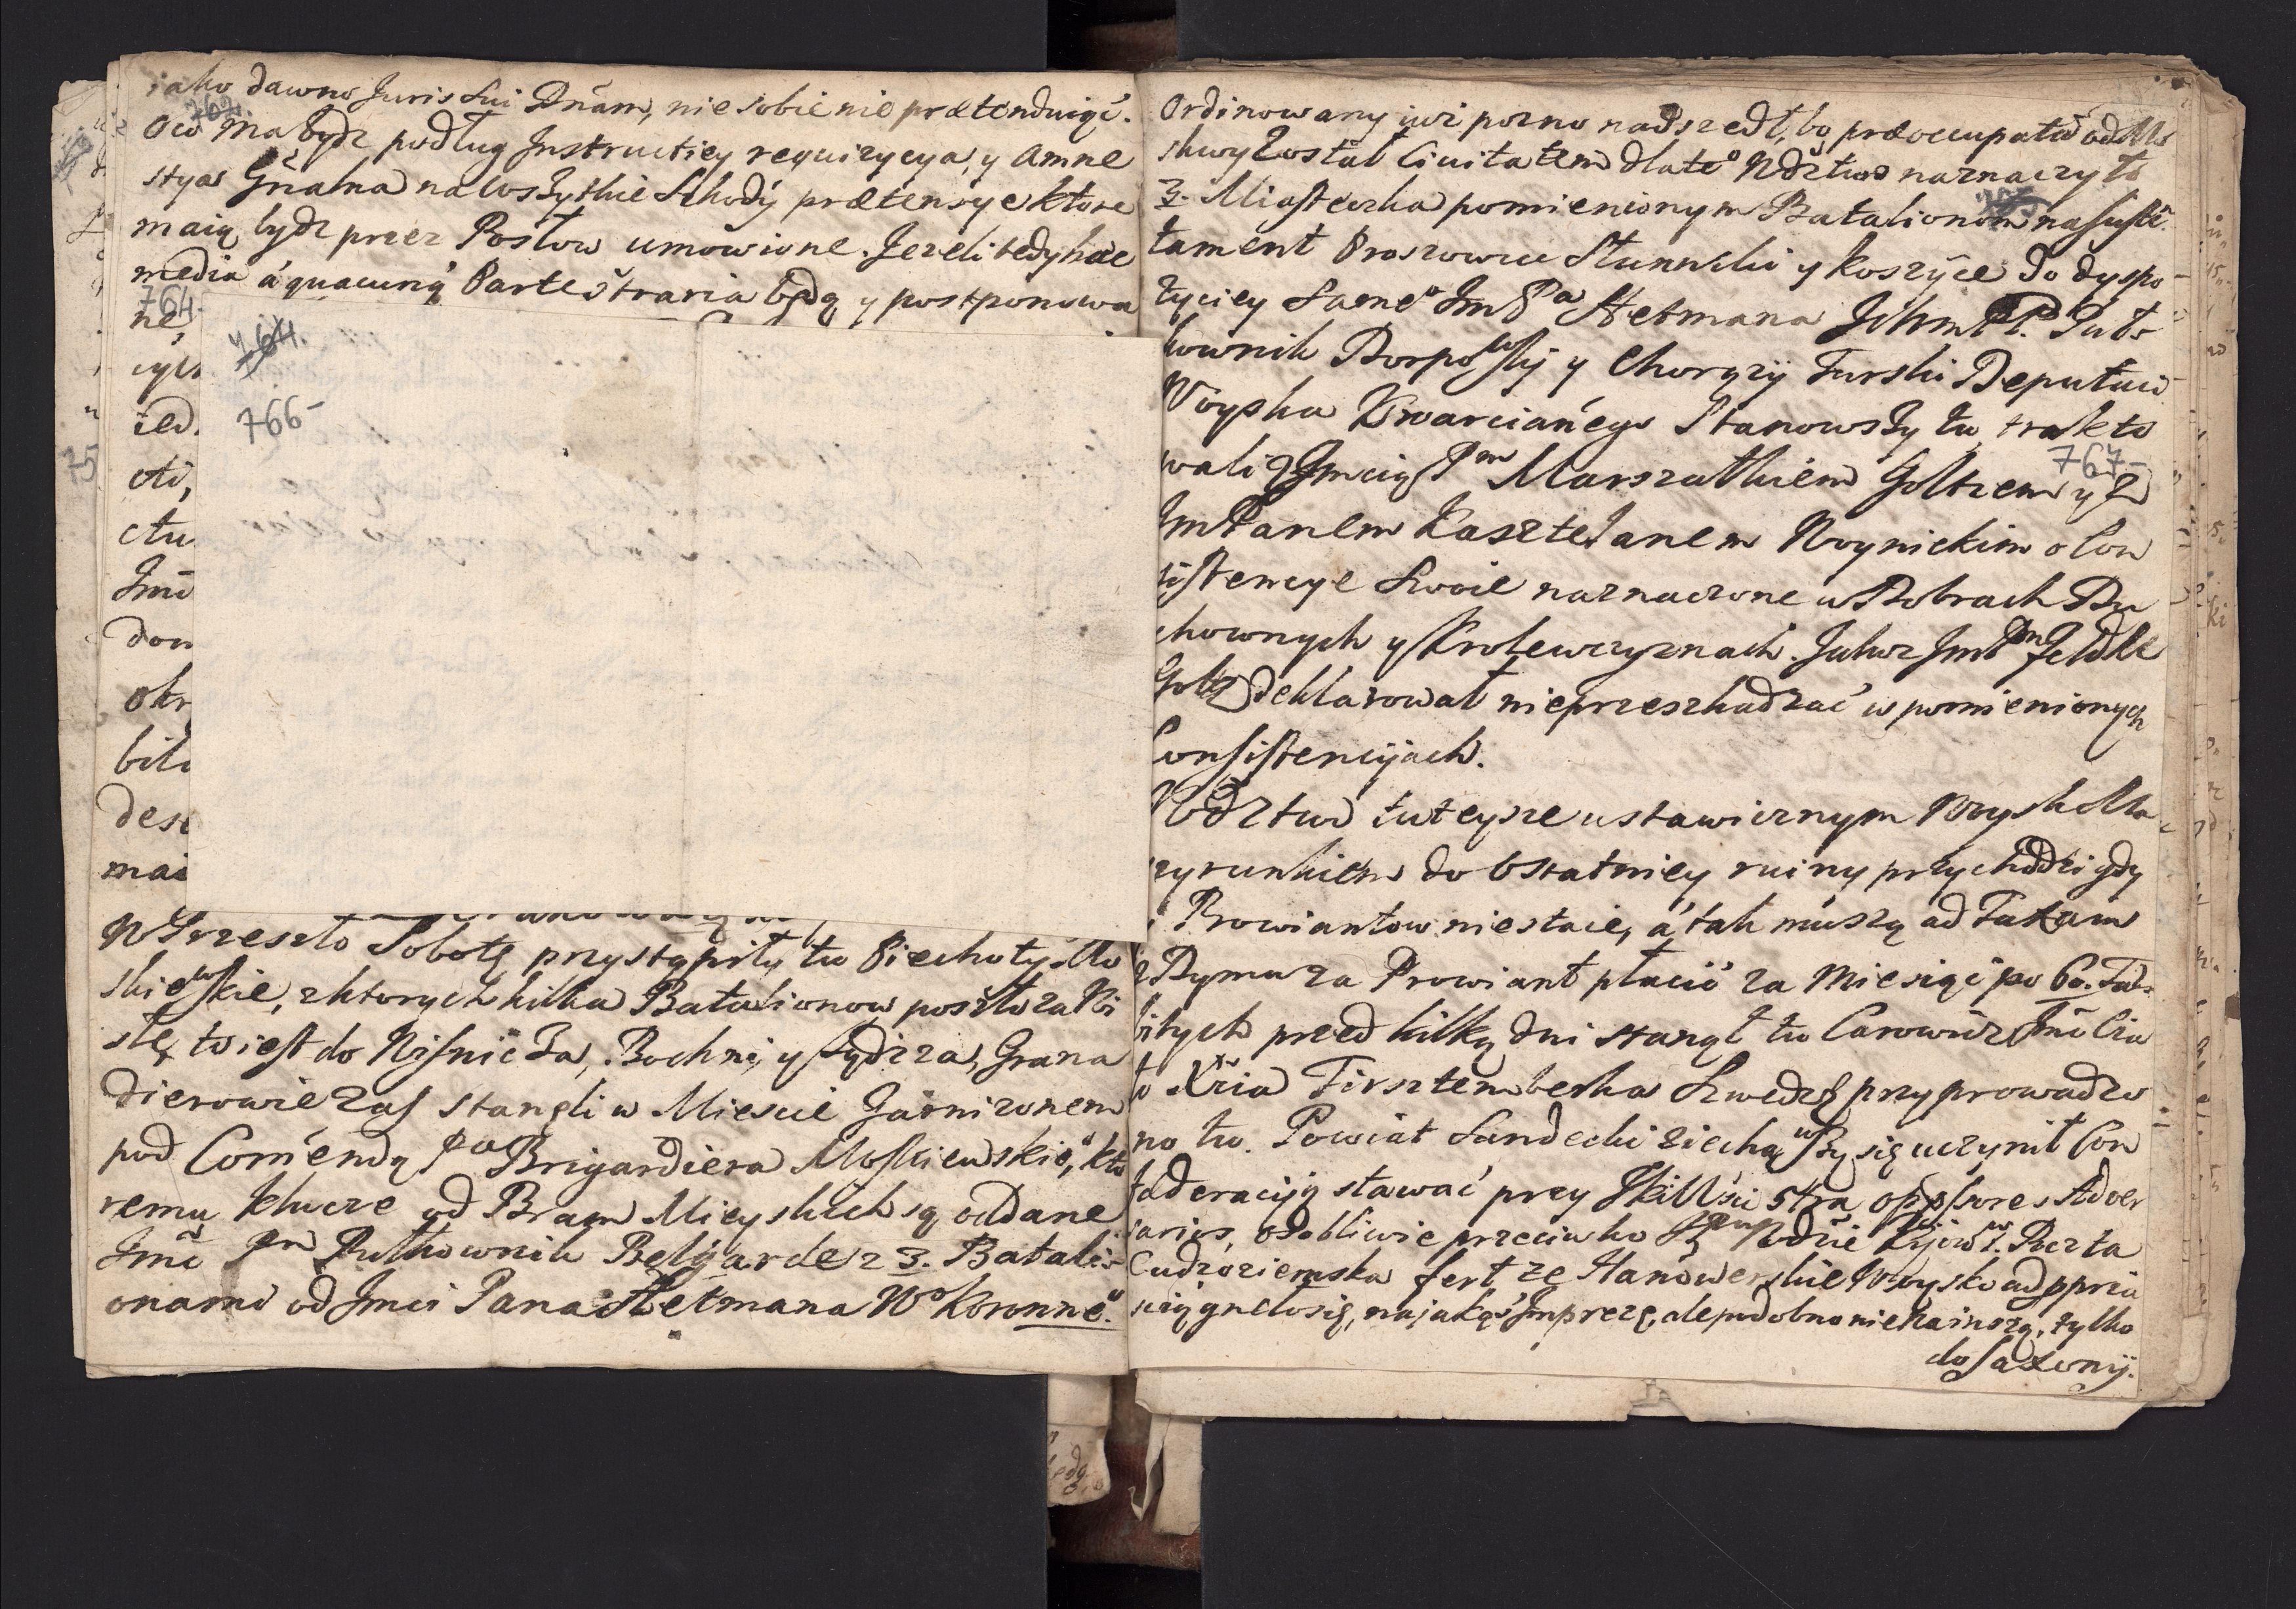 iako dawno Juris sui Dnam, nie sobie nie prætenduiąć.
762.
Oco ma bydz podług Instructiey requizycya, y Amne
stya Gnalna na wszytkie Schody prætensye ktore
maią bydz przez Posłow umowione. Jezeli tedy hæc
media a quacunq Parte straria będą y postponowa
764.
ne,
764.
cyli
766-
ied.
cti,
ctu
Jmc
don
okr
bili
dese
mai
W Przeszło Sobotę przystąpiły tu Piechoty Mo
skiewskie, z ktorych kilka Batalionow poszło za Wi
słę, to iest do Wisnicza, Bochni, y Sydcza, Grana
dierowie zas stanęli w Miescie Garnizonem
pod Comendą Pa Brigardiera Moskiewskieo, kto
remu klucze od Bram Mieyskich są oddane
Jmc Pan Pułkownik Belgarde z 3. Batali-
onami od Jmci Pana Hetmana Wo Koronneo.
Ordinowany iuz pozno nadszedł, bo præoccupata od Mo
skwy został Civitatem dlateo Wdztwo naznaczyło
3. Miasteczka pomienionym Batalionom na suste.
tament Proszowice Słumniki y Koszyce do dyspo-
zyciey sameo Jm Pa Hetmana Jchm PP. Puł-
kownik Borpowski y Chorązy Turski Deputaci
Woyska Kwarcianego Stanowszy tu trakto
wali z Jmcią Pem Marszałkiem Goltzem y z
767-
Jm Panem Kasztelanem Woynickim o Con
sistencye swoie naznaczone w Dobrach Du
chownych y Krolewczyznach. Jakoz Jm Pan Feldm
Goltz deklarował nieprzeszkadzać w pomienionych
Consistencyjach.
Wdztwo tuteysze ustawicznym Woysk Ma
szyrunkiem do Ostatniey ruiny przychodzi gdy
i Prowiantow niestaie, a tak muszą ad Taxam
z Dymu za Prowiant płacić za Miesiąc po 60. Tal.
bitych przed kilką dni stanął tu Carowicz Jmc Cia
ło Xcia Firsztemberka Szwedzi przyprowadzo
no tu. Powiat Sandecki ziechawszy się uczynił Con
fæderacyją stawać przy JKMsci 5tra oppsores Adver
sarios, osobliwie przeciwko JPanu Wdzie Kijows. Poczta
Cudzoziemska fert ze Hanowerskie Woysko ad ppria
sciągneło się, na jakąś Imprezę, ale podobno nie na inszą, tylko
do Saxonij.